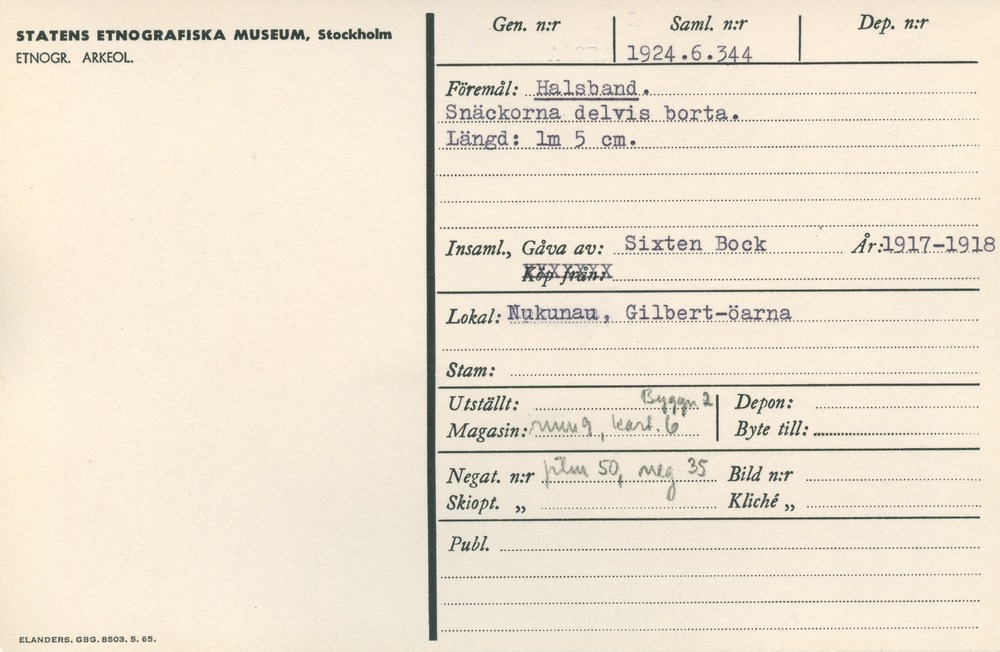 STATENS ETNOGRAFISKA MUSEUM, Stockholm
ETNOGR. ARKEOL.
Gen. n:r Saml. n:r Dep. n:r
1924.6.344
Föremål: Halsband.
Snäckorna delvis borta.
Längd: 1m 5 cm.
Insaml., Gåva av: Sixten Bock År:1917-1918
Köp från:
Lokal: Nukunau, Gilbert-öarna
Stam:
Utställt: Byggn 2 Depon:
Magasin: rum 9, kart. 6 Byte till:
Negat. n:r film 50, neg 35 Bild n:r
Skiopt. „ Kliché „
Publ.
ELANDERS. GBG. 8503. 5. 65.